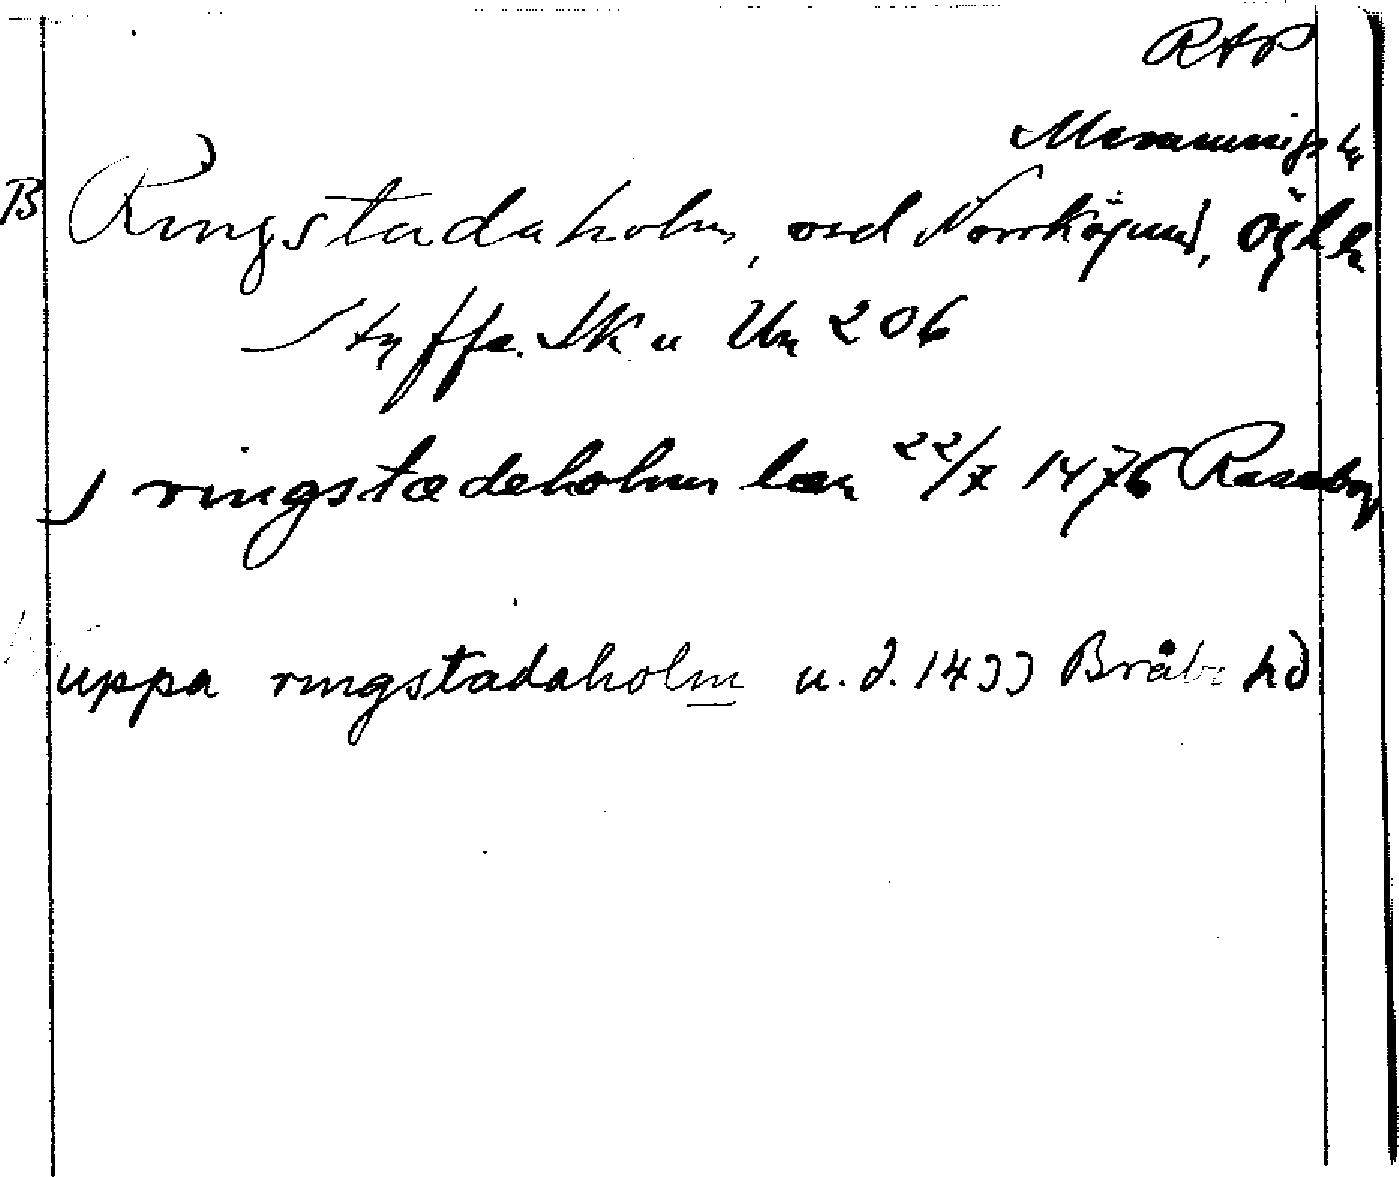 RAP
Memmings hd
B Ringstadaholm, vid Norrköping, Ögl
Styffe. Sk u Un 206
J ringstædeholms læn 22/7 1476 Raseborg
uppa ringstadaholm u.d. 1433 Bråbo hd